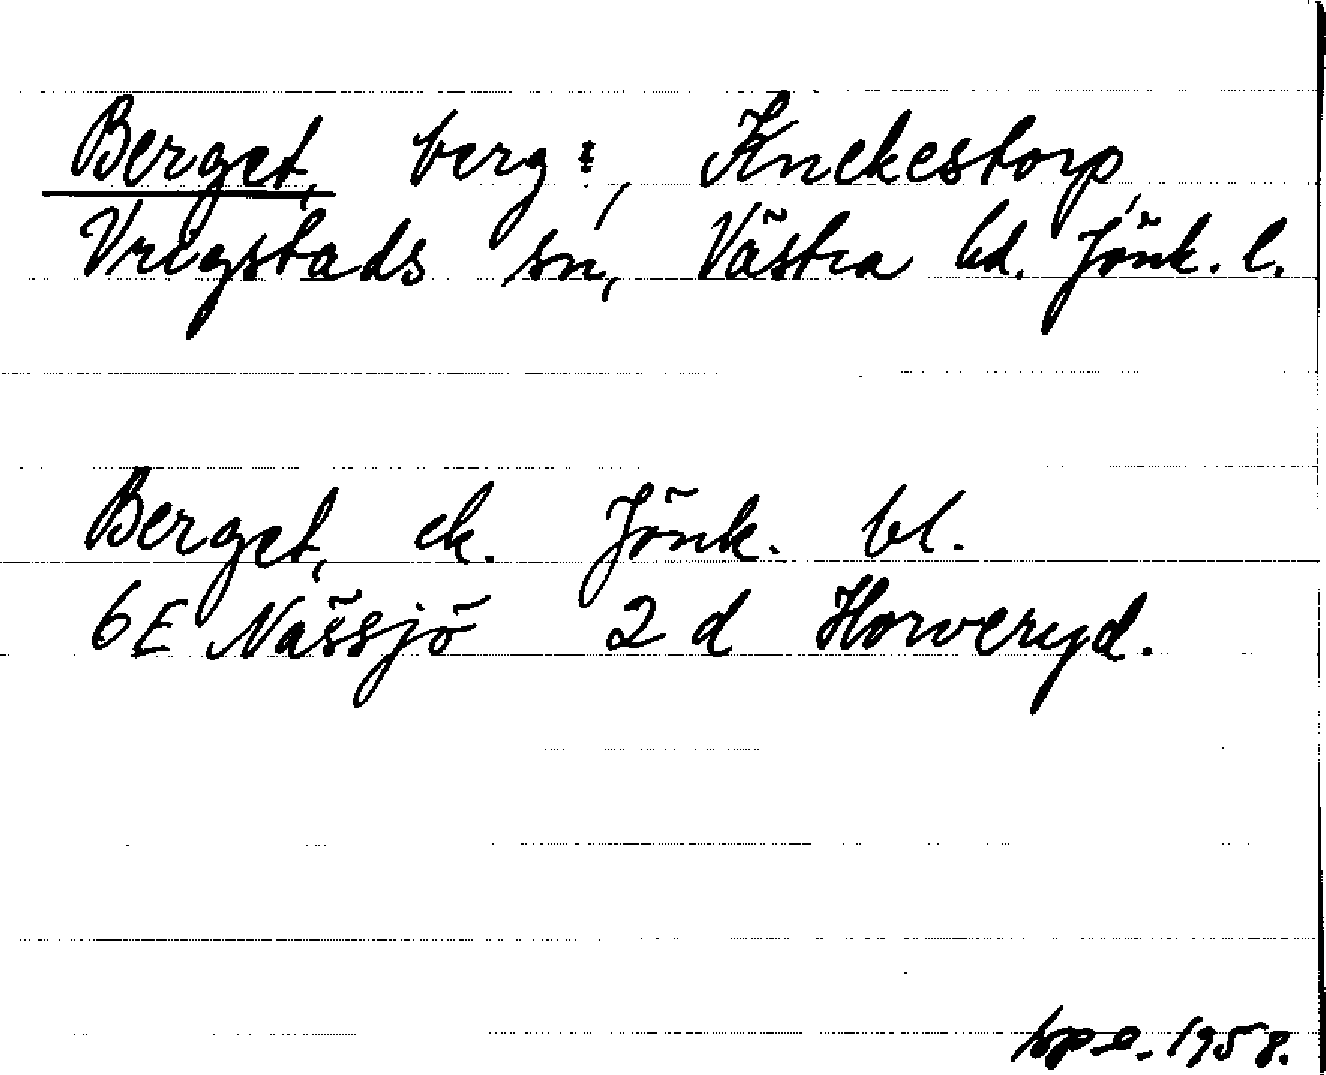 Berget, berg:, Knekestorp,
Vrigstads sn, Västra hd. Jönk. l.
Berget, ek. Jönk. bl.
6E Nässjö 2 d Horveryd.
1958.